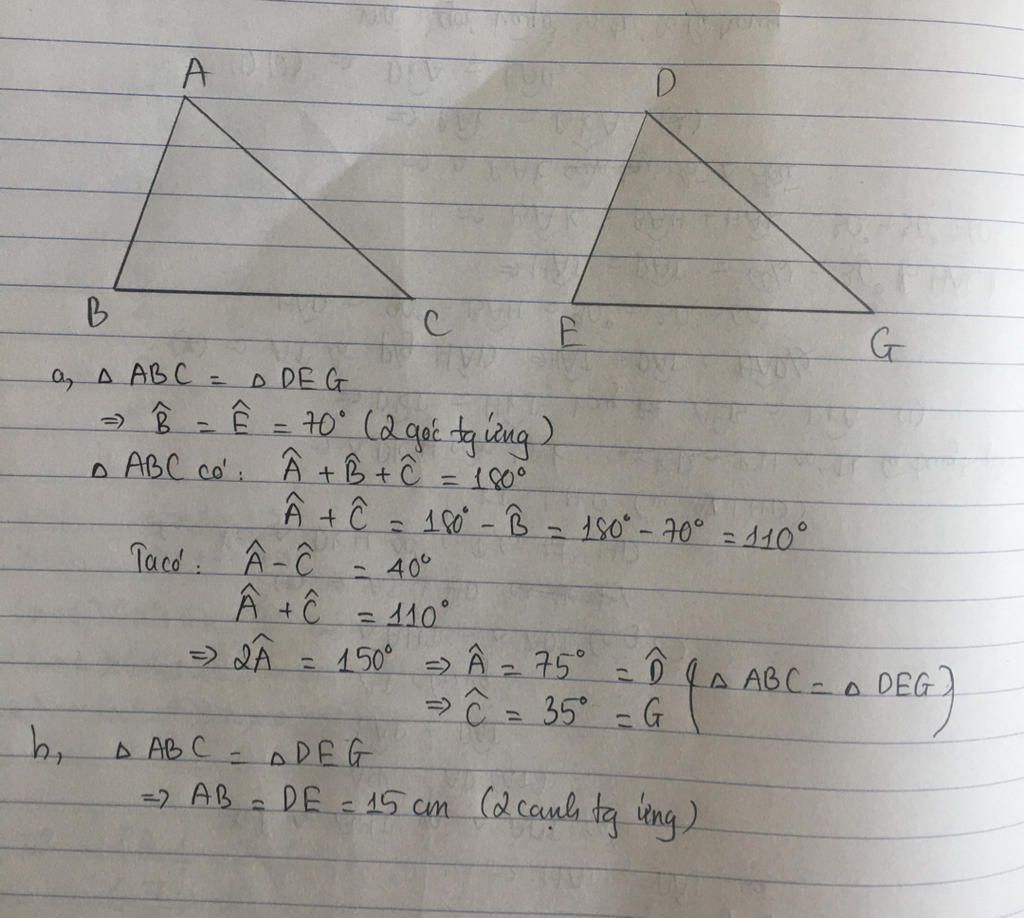 A
D
B
C
E
G
a, △ ABC = △ DEG
⇒ B̂ = Ê = 70° (2 góc tg ứng)
△ ABC có: Â + B̂ + Ĉ = 180°
Â + Ĉ = 180° - B̂ = 180° - 70° = 110°
Ta có: Â - Ĉ = 40°
Â + Ĉ = 110°
⇒ 2Â = 150° ⇒ Â = 75° = D̂ (△ ABC = △ DEG)
⇒ Ĉ = 35° = G
b, △ ABC = △ DEG
⇒ AB = DE = 15 cm (2 cạnh tg ứng)